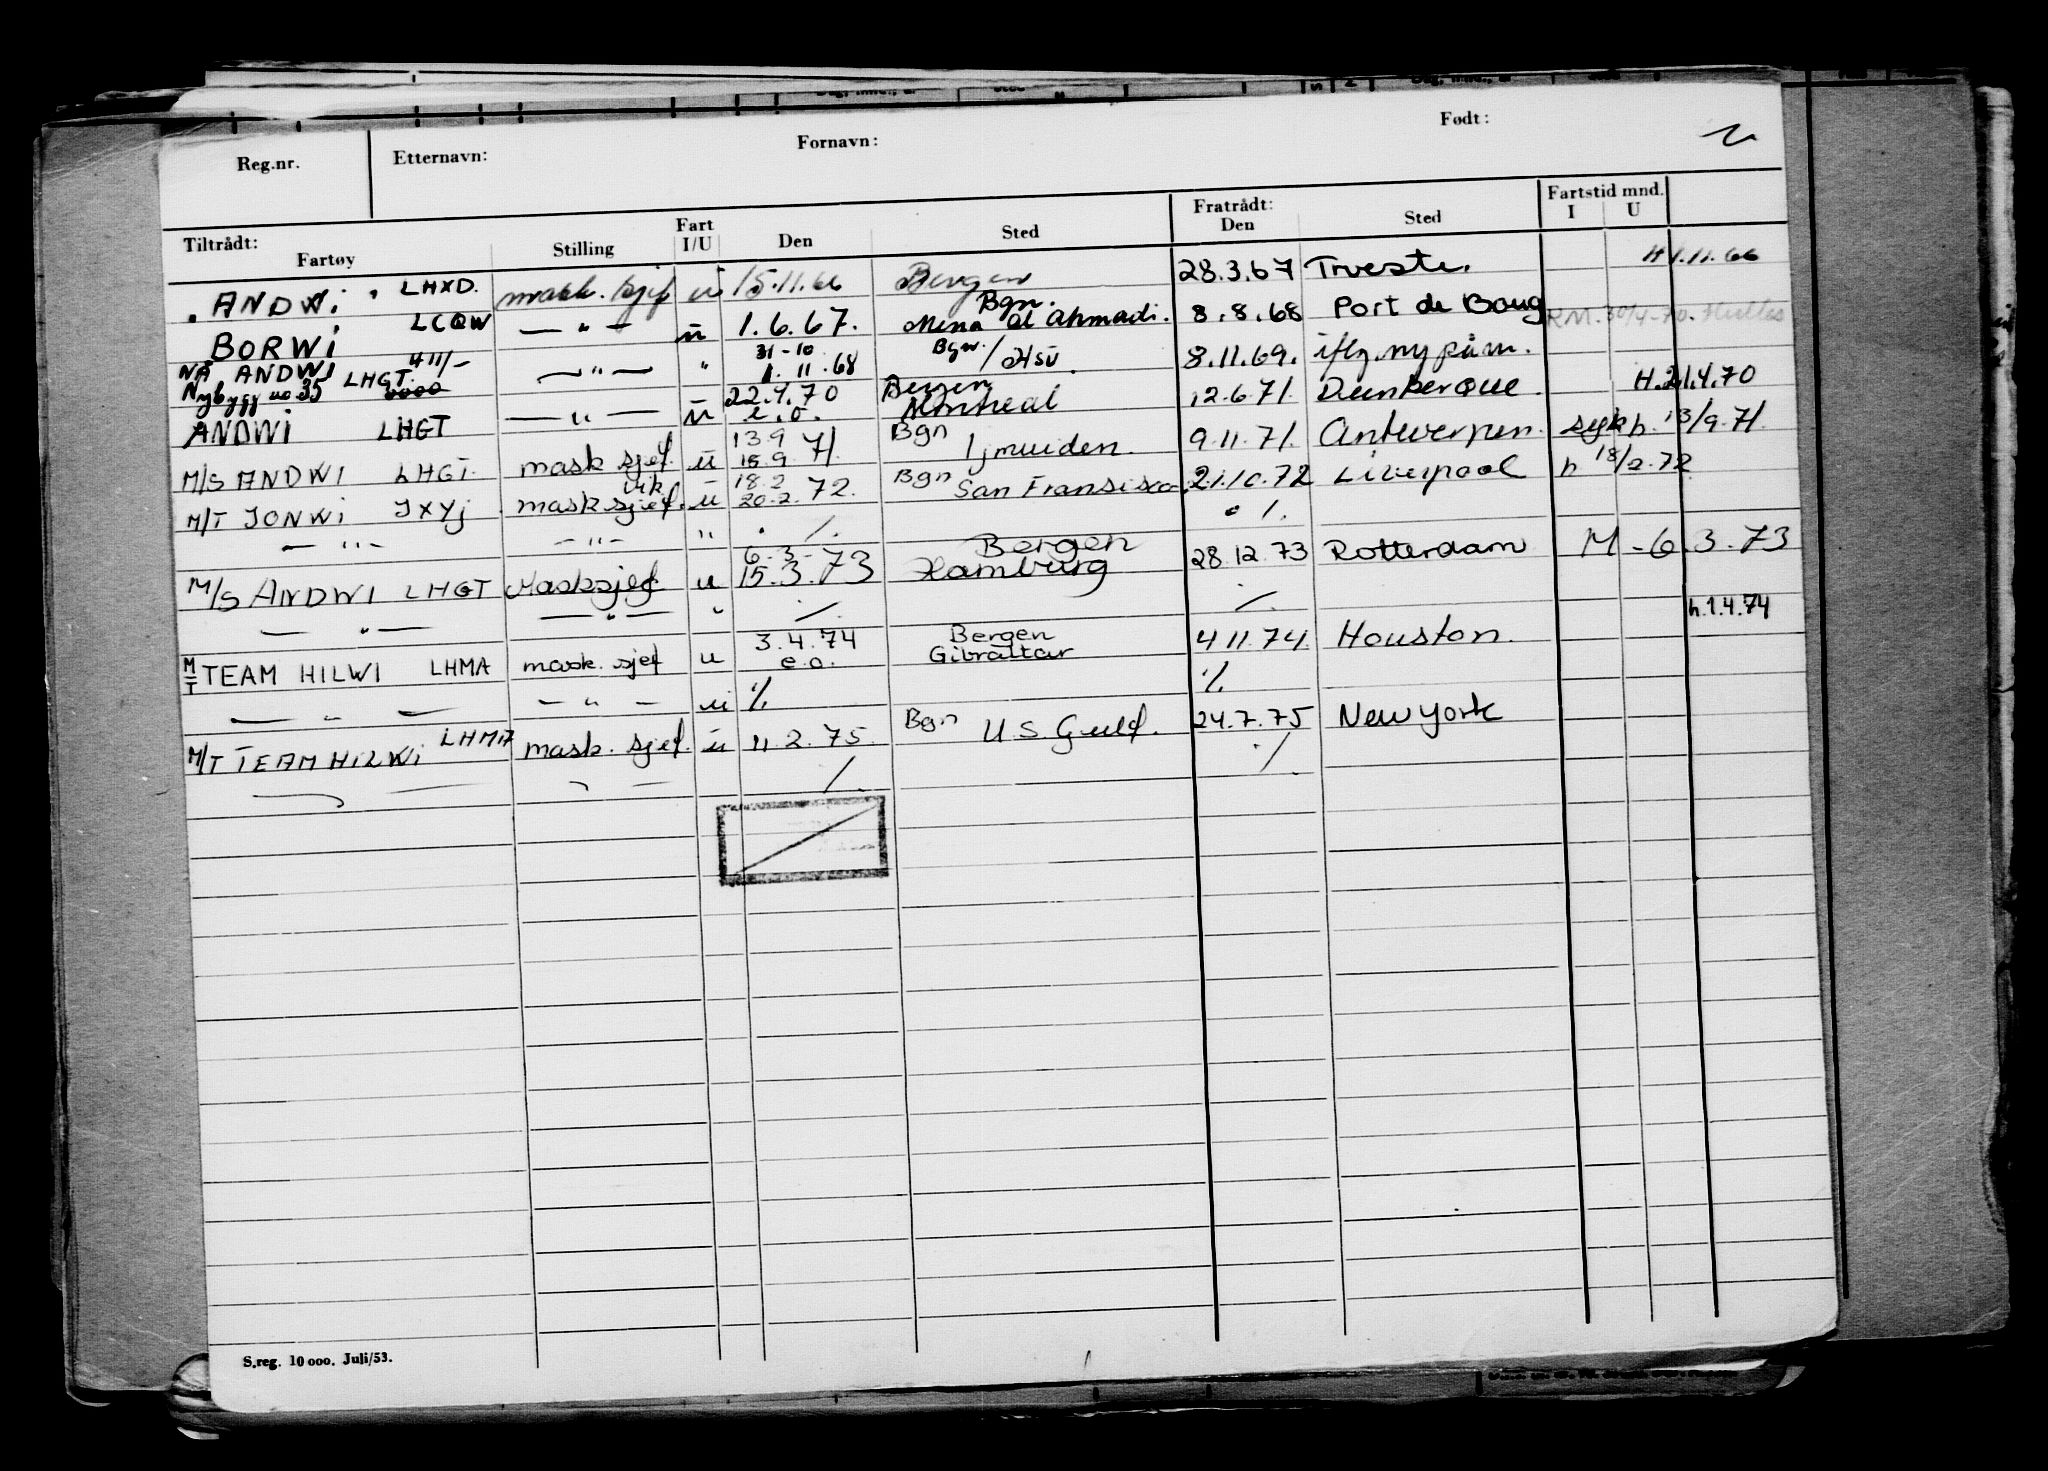 Reg.nr. Etternavn: Fornavn: Født: 2
Tiltrådt: Fratrådt: Fartstid mnd.
Fartøy Stilling Fart I/U Den Sted Den Sted I U
. ANDWi. LHXD. mask. sjef u 15.11.66 Bergen 28.3.67 Trieste. H 1.11.66
BORWi LCQW — " — u 1.6.67. Bgn. Mina al Ahmadi. 8.8.68 Port de Boug
NÅ ANDWI 4/11/- Nybygg no. 35 LHGT — " — " 31-10 1.11.68 Bgn. / Hsu 8.11.69. iflg. ny påm. RM. 30/4-70.
ANDWi LHGT — " — u 22.4.70 e.o. Bergen Montreal 12.6.71. Dunkerque. H. 21.4.70
M/S ANDWI LHGT. mask sjef. u 13.9 15.9. 71. Bgn Ijmuiden. 9.11.71. Antwerpen. sykh. 13/9.71.
M/T JONWi JXYj vik. mask sjef. u 18.2 20.2. 72. Bgn San Fransisco. 21.10.72 Liverpool h 18/2.72
— " — — " — " ./. ./.
M/S ANDWI LHGT Masksjef u 6-3- 15.3.73 Bergen Hamburg 28.12.73 Rotterdam M - 6.3.73
— " — — " — " ./. ./.
M/T TEAM HILWI LHMA mask. sjef u 3.4.74 e.o. Bergen Gibraltar 4.11.74. Houston. h.1.4.74
— " — — " — u ./. ./.
M/T TEAM HILWi LHMA mask. sjef. u 11.2.75. Bgn U.S. Gulf. 24.7.75 New York
— " — ./. ./.
S.reg. 10 000. Juli/53.